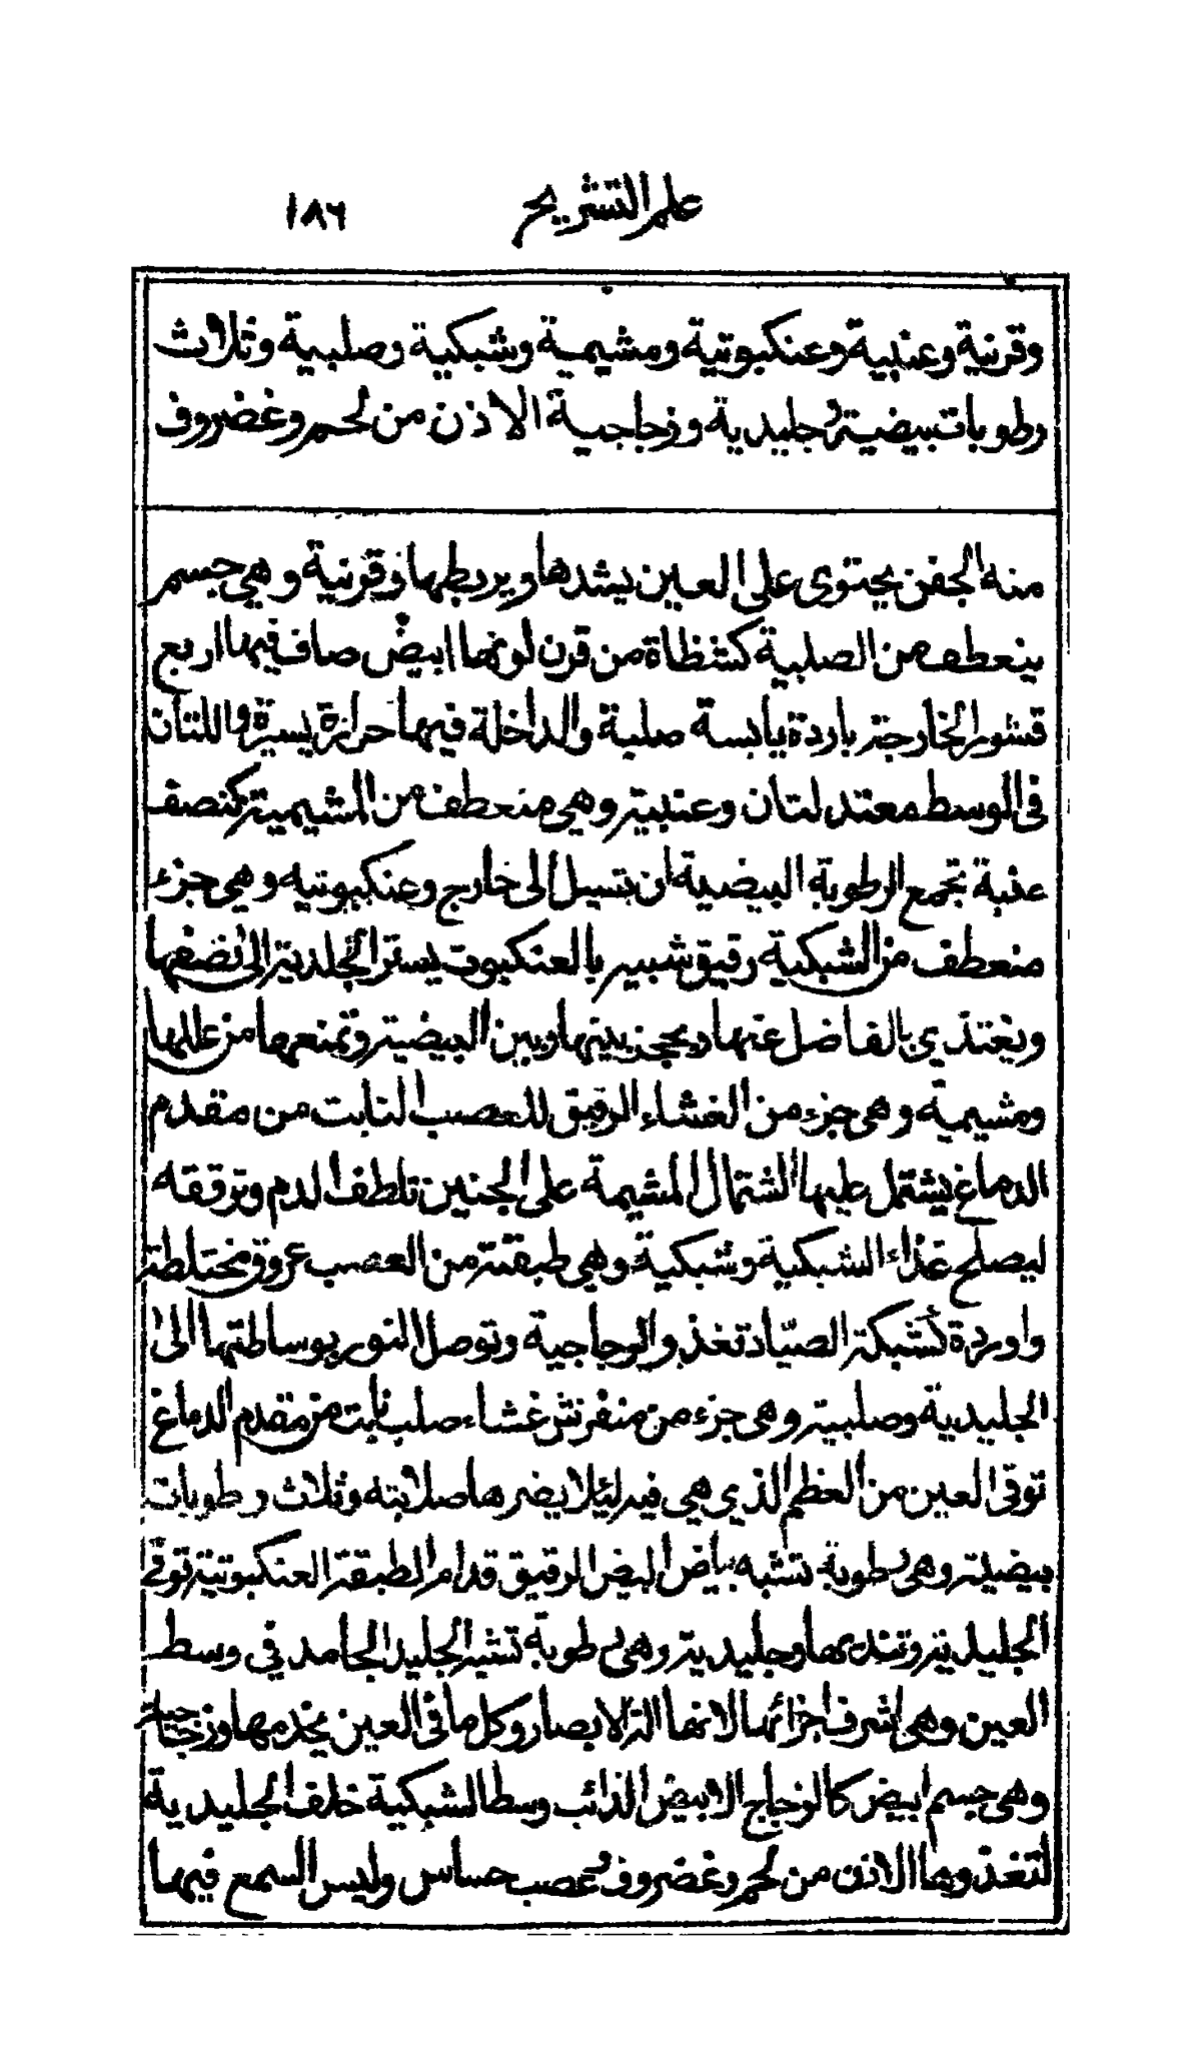 علم التشريح ١٨٦
وقرنية وعنبية وعنكبوتية ومشيمية وشبكية وصلبية وثلاث
رطوبات بيضية وجليدية وزجاجية الاذن من لحم وغضروف
منه الجفن يحتوى على العين يشدها ويربطها وقرنية وهي جسم
ينعطف من الصلبية كشظاة من قرن لونها ابيض صاف فيها اربع
قشور الخارجة باردة يابسة صلبة والداخلة فيها حرارة يسيرة واللتان
في الوسط معتدلتان وعنبية وهي منعطف من المشيمية كنصف
عنبة تجمع الرطوبة البيضية ان تسيل الى خارج وعنكبوتيه وهي جزء
منعطف من الشبكية رقيق شبيه بالعنكبوت يستر الجلدية الى نصفها
ويغتذي بالفاضل عنها ويحجز بينها وبين البيضية وتمنعها من عللها
ومشيمية وهى جزء من الغشاء الرقيق للعصب النابت من مقدم
الدماغ يشتمل عليها اشتمال المشيمة على الجنين تلطف الدم وترققه
ليصلح غذاء الشبكية وشبكية وهي طبقة من العصب عروق مختلطة
واوردة كشبكة الصيّاد تغذو الزجاجية وتوصل النور بوساطتها الى
الجليدية وصلبية وهى جزء من منفرش غشاء صلب نابت من مقدم الدماغ
توقى العين من العظم الذي هي فيه لئلا يضرها صلابته وثلاث رطوبات
بيضية وهى رطوبة تشبه بياض البيض الرقيق قدام الطبقة العنكبوتية توقى
الجليدية وتنديها وجليدية وهى رطوبة تشبه الجليد الجامد في وسط
العين وهى اشرف اجزائها لانها الة الابصار وكل ما في العين يخدمها وزجاجية
وهى جسم ابيض كالزجاج الابيض الذائب وسط الشبكية خلف الجليدية
لتغذوها الاذن من لحم وغضروف وعصب حساس وليس السمع فيها